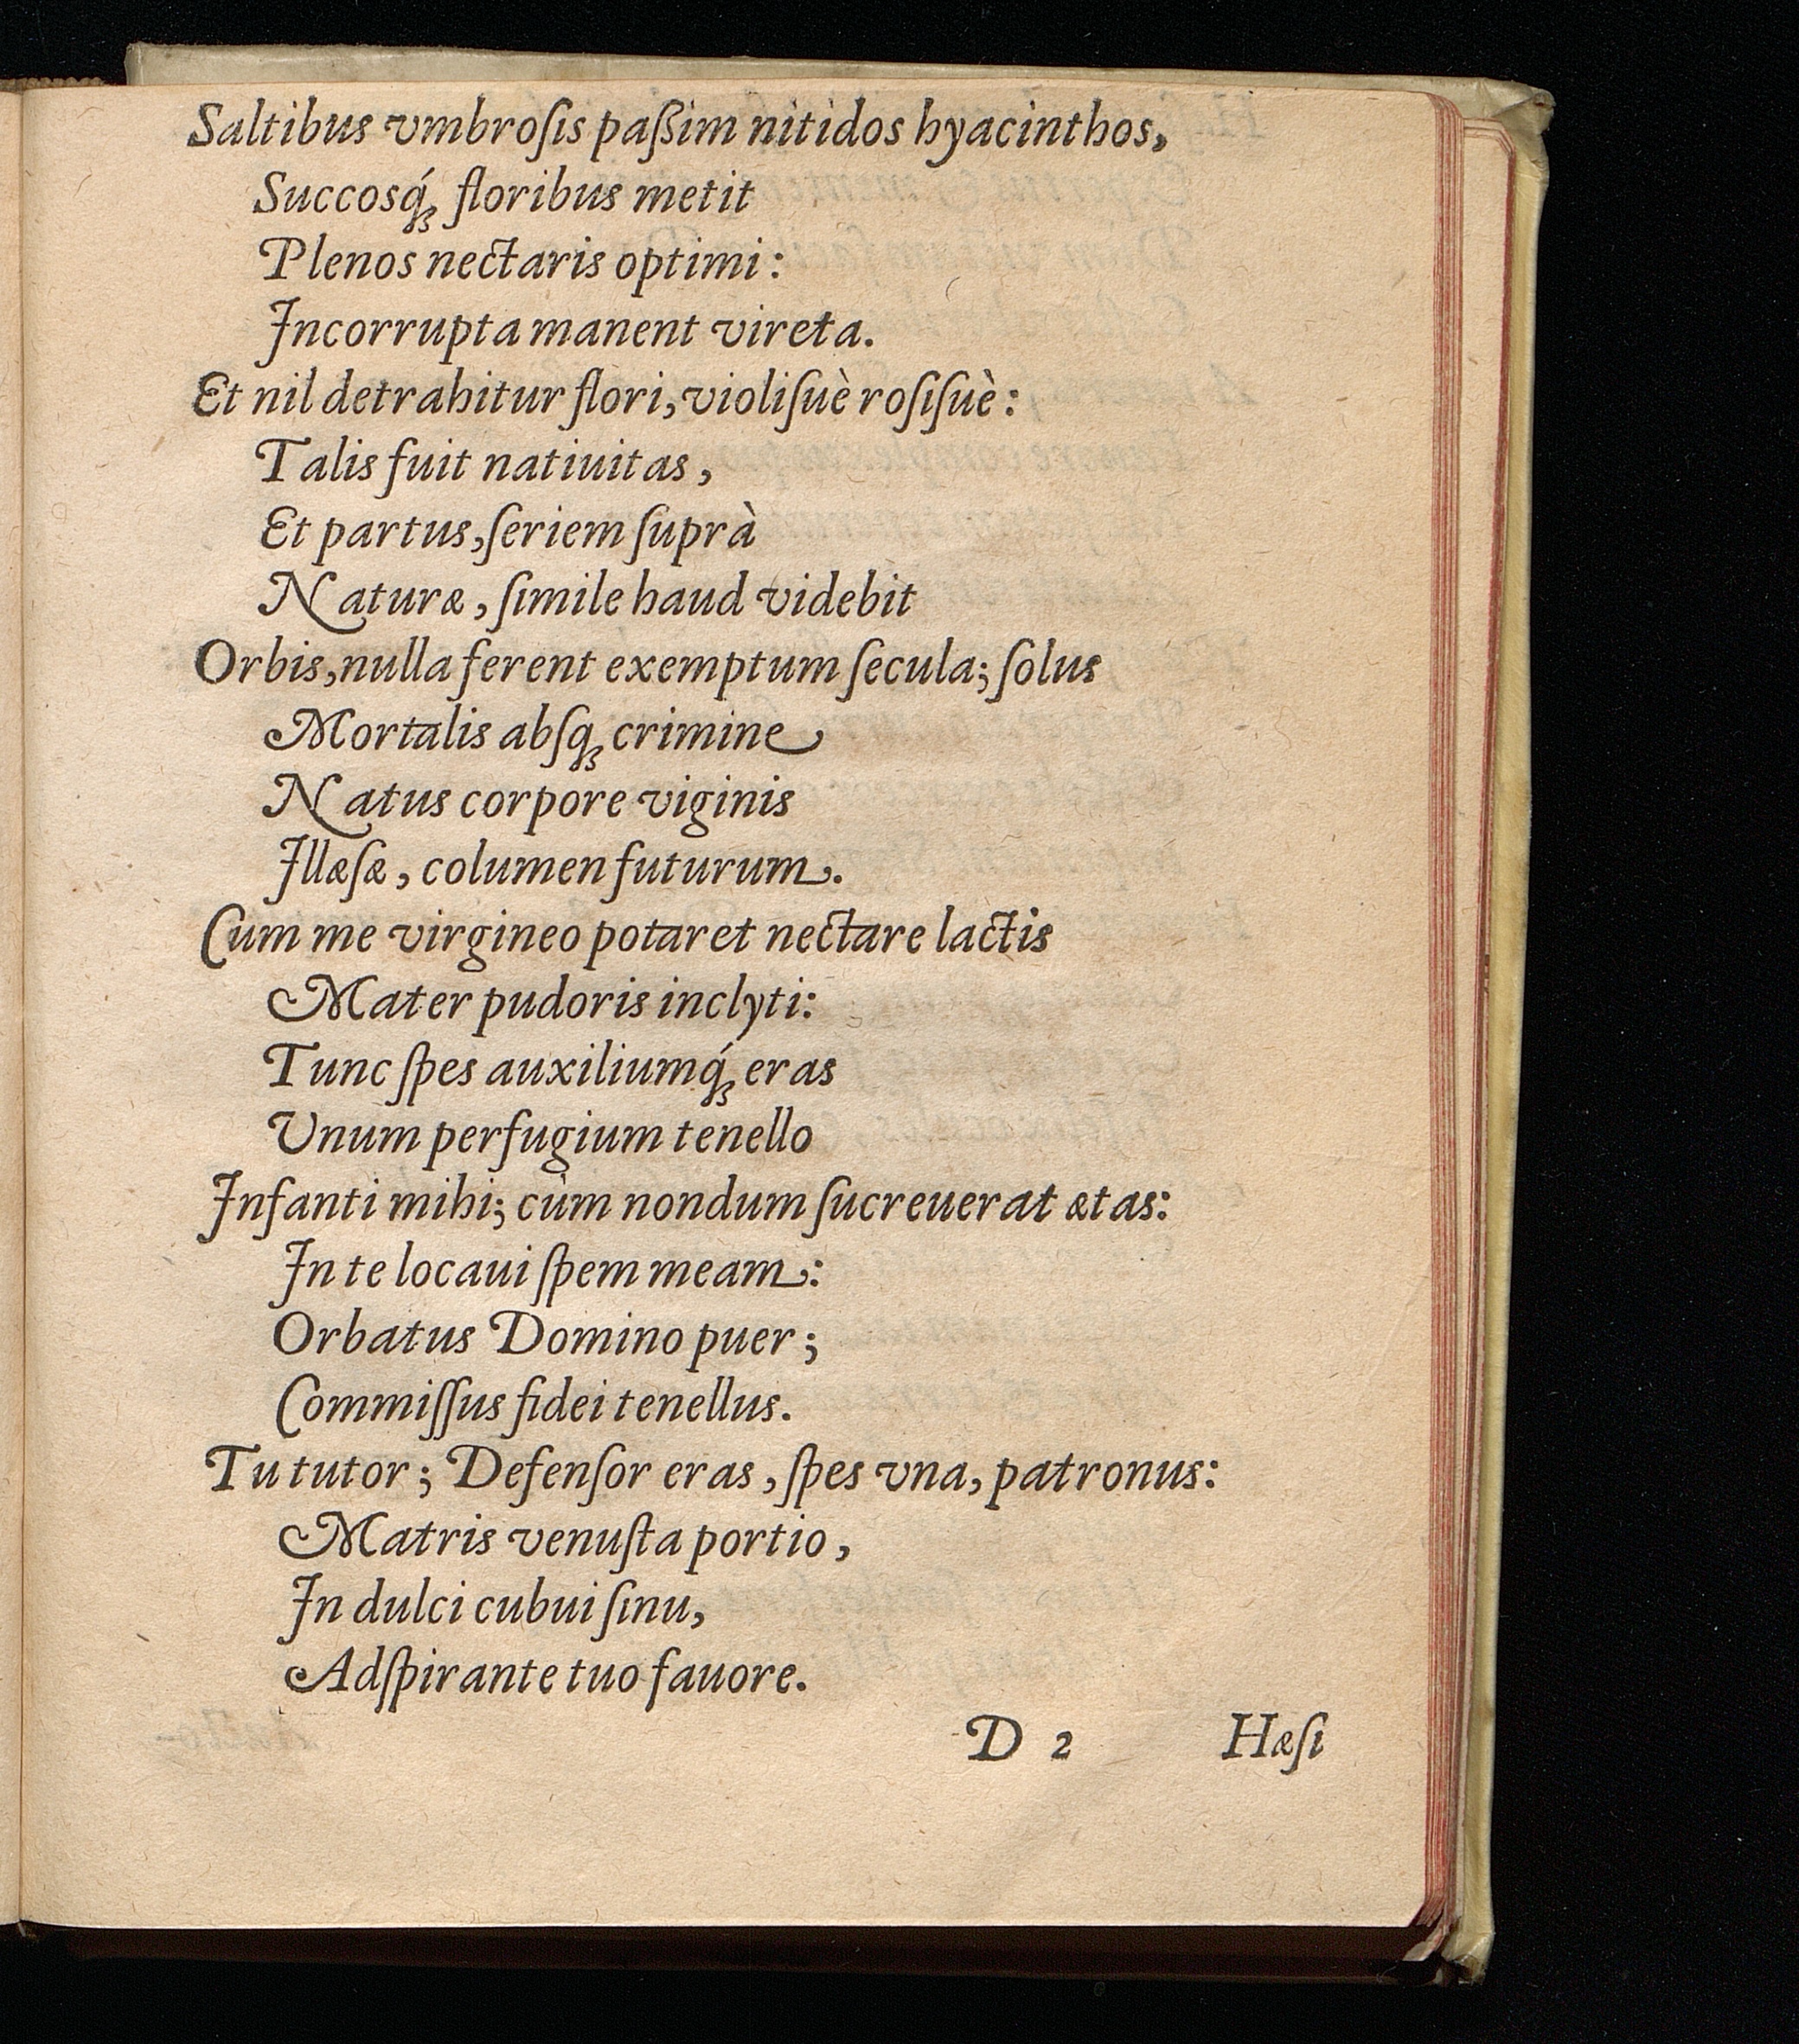 Saltibus vmbroſis paßim nitidos hyacinthos,
Succosq́ꝫ floribus metit
Plenos nectaris optimi:
Incorrupta manent vireta.
Et nil detrahitur flori, violiſuè roſiſuè:
Talis fuit natiuitas,
Et partus, ſeriem ſuprà
Naturæ, ſimile haud videbit
Orbis, nulla ferent exemptum ſecula; ſolus
Mortalis abſqꝫ crimine
Natus corpore viginis
Illæſæ, columen futurum.
Cum me virgineo potaret nectare lactis
Mater pudoris inclyti:
Tunc ſpes auxiliumq́ꝫ eras
Vnum perfugium tenello
Infanti mihi; cùm nondum ſucreuerat ætas:
In te locaui ſpem meam:
Orbatus Domino puer;
Commiſſus fidei tenellus.
Tu tutor; Defenſor eras, ſpes vna, patronus:
Matris venuſta portio,
In dulci cubui ſinu,
Adſpirante tuo fauore.
D 2 Hæſi